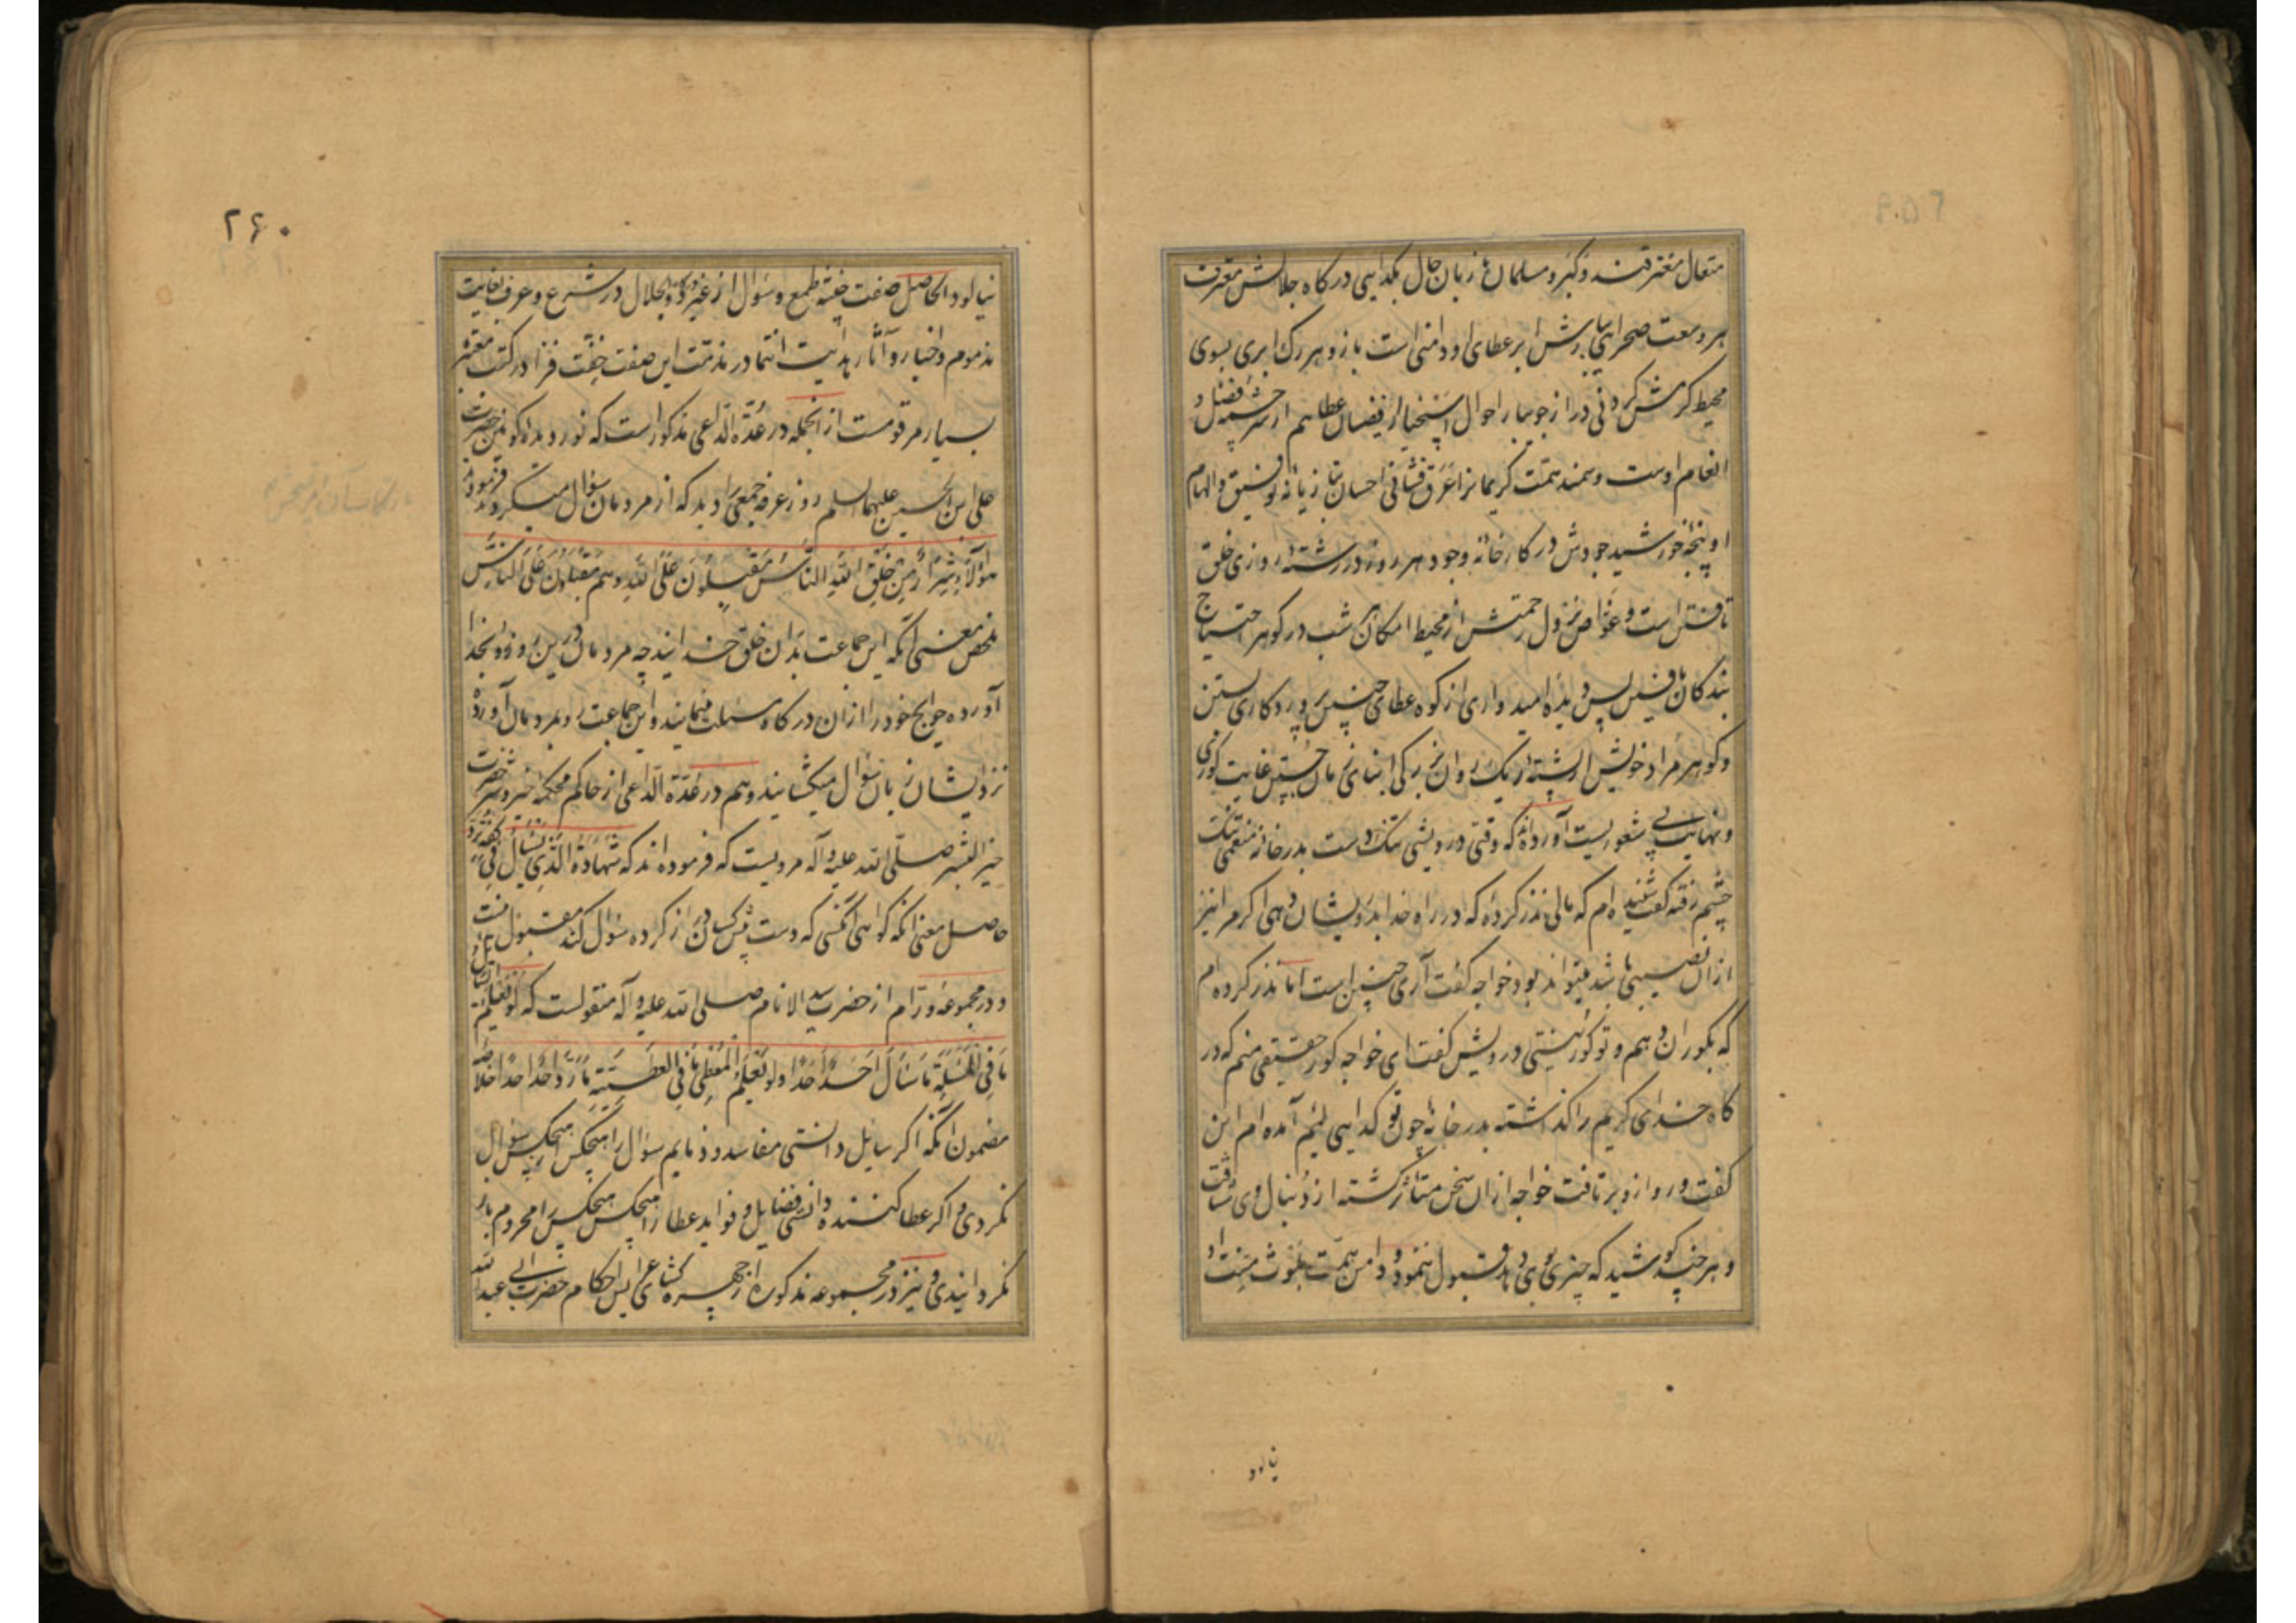 متعال معترفند و کبر و مسلمان بزبان حال بکدایی درکاه جلالش معترف
هر وسعت صحرایی بارش ابر عطای او دامنی است باز و هر رک ابری بسوی
محیط کرمش کردنی دراز جویبار احوال اسخیا از فیضان عطا هم از سرچشمه فضل و
انعام اوست و سمند همت کریمانرا عرق فشانی احسان بتازیانه توفیق و الهام
او پنجه خورشید جودش در کارخانه وجود هر روز در رشته روزی خلق
تافتن است و غواص نزول رحمتش از محیط امکان هر شب در کوهر احتیاج
بندکان یافتن پس دیده امیدواری از کوه عطای چنین پروردکاری بستن
و کوهر مراد خویش از پشته ریک روان بزرکی ابنای زمان جستن غایت کوری
و نهایت بی شعوریست آورده اند که وقتی درویشی تنک دست بدر خانه منعمی تنک
چشم رفته کفت شنیده ام که مالی نذر کرده که در راه خدا بدرویشان دهی اکر مرا نیز
ازان نصیبی باشد میتواند بود خواجه کفت آری چنین است اما نذر کرده ام
که بکوران دهم و تو کور نیستی درویش کفت ای خواجه کور حقیقی منم که در
کاه خدای کریم را کذاشته بدر خانه چون تو کدایی لئیم آمده ام این
کفت و رو ازو برتافت خواجه ازان سخن متاثر کشته از دنبال وی شتافت
و هر چند کوشید که چیزی بوی دهد قبول ننمود و دامن همت بلوث منت او
نیالود
۲۶۰
نیالود الحاصل صفت خفیفه طمع و سؤال از غیر درکاه ذوالجلال در شرع و عرف بغایت
مذموم و اخبار و آثار هدایت انتما در مذمت این صفت خفت فزا در کتب معتبره
بسیار مرقومست از انجمله در عدة الداعی مذکور است که نور دیده کونین حضرت
علی ابن الحسین علیهما السلم روز عرفه جمعی را دید که از مردمان سؤال میکردند فرمود
هؤلاء شرار من خلق الله الناس مقبلون علی الله و هم مقبلون علی الناس
ملخص معنی آنکه این جماعت بدان خلق خدایند چه مردمان درین روز رو بخدا
آورده حوایج خود را ازان درکاه مسئلت مینمایند و این جماعت رو بمردمان آورده
نزد ایشان زبان سؤال میکشایند و هم در عدة الداعی از حاکم محکمه خیر و شر حضرت
خیر البشر صلی الله علیه و آله مرویست که فرموده اند که شهادة الذی یسأل فی کفه ترد
حاصل معنی آنکه کواهی آنکسی که دست پیش کسان دراز کرده سؤال کند مقبول نیست
و در مجموعه ورام از حضرت سید الانام صلی الله علیه و آله منقولست که لو تعلم السائل
ما فی المسئلة ما سأل احد احدا و لو تعلم المعطی ما فی العطیة ما رد احد احدا خلاصه
مضمون آنکه اکر سایل دانستی مفاسد و ذمایم سؤال را هیچکس از هیچکس سؤال
نکردی و اکر عطا کننده دانستی فضایل و فواید عطا را هیچکس هیچکس را محروم باز
نکردانیدی و نیز در مجموعه مذکوره از چهره کشای عرایس احکام حضرت ابی عبد الله